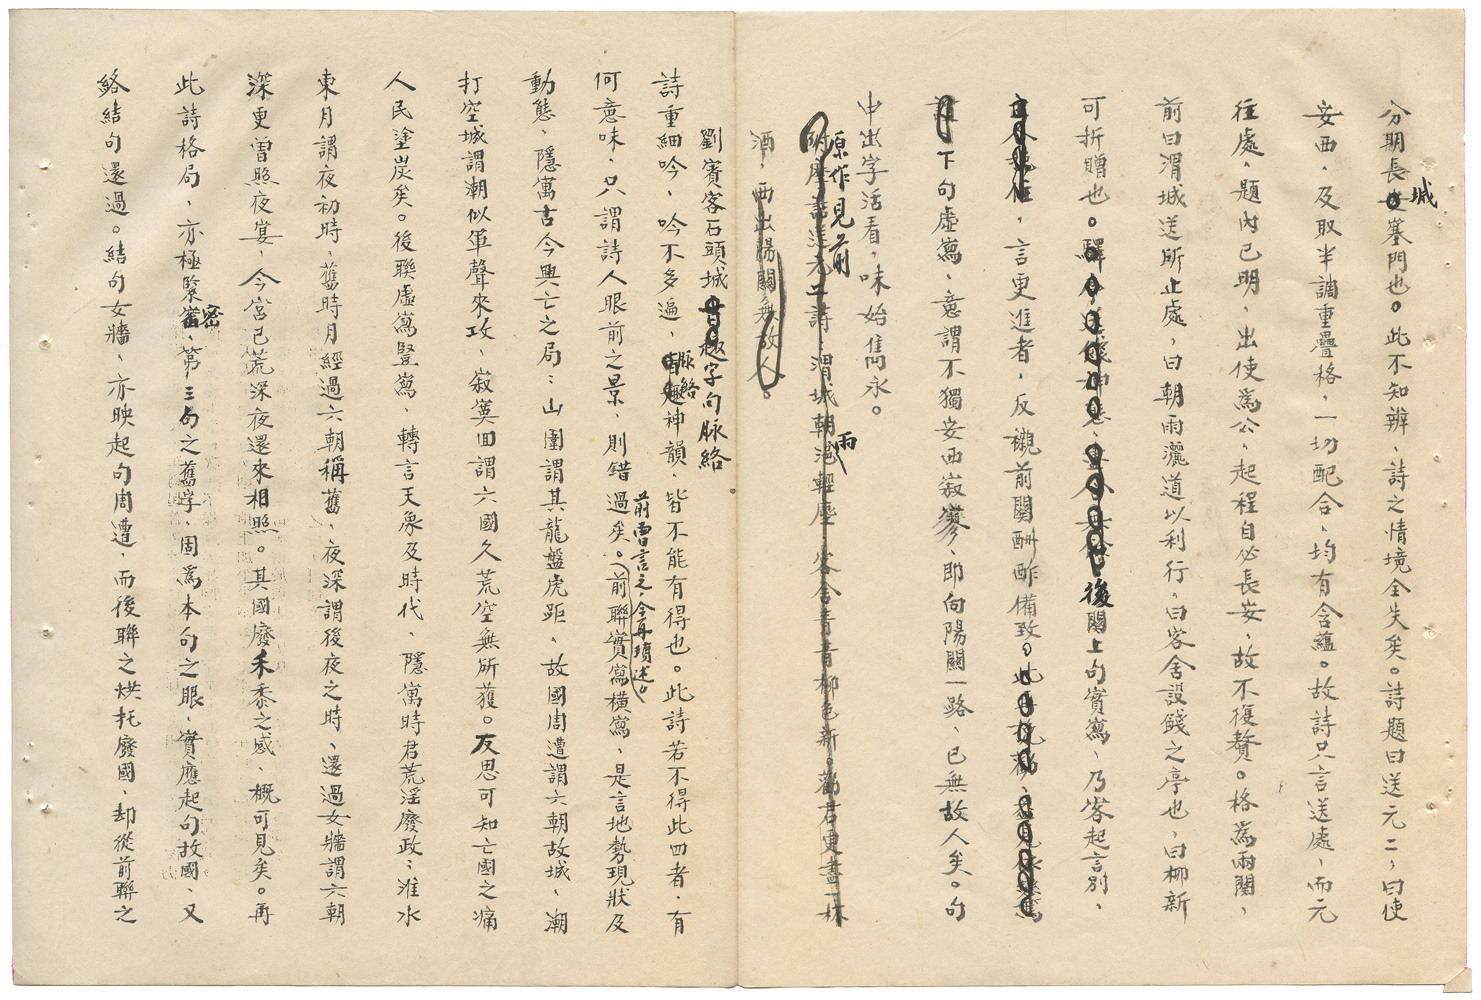 分期長城塞門也。此不知辨、詩之情境全失矣。詩題曰送元二，曰使
安西，及取半調重疊格，一切配合、均有含蘊。故詩只言送處，而元
往處，題內已明，出使為公、起程自必長安，故不復贅。格為兩關，
前曰渭城送所止處，曰朝雨灑道以利行，曰客舍設餞之亭也，曰柳新
可折贈也。後關上句實寫、乃客起言別，
言更進者，反襯前關酬酢備致。
下句虛寫、意謂不獨安西寂寥、即向陽關一路、已無故人矣。句
中出字活看，味始雋永。
原作見前
附摩詰送元二詩，渭城朝雨浥輕塵，客舍青青柳色新。勸君更盡一杯
酒，西出陽關無故人。
劉賓客石頭城趣字句脈絡
詩重細吟，吟不多遍，脈絡神韻，皆不能有得也。此詩若不得此四者，有
何意味、只謂詩人眼前之景，則錯過矣。前曾言之，今再瑣述。前聯實寫橫寫、是言地勢現狀及
動態、隱寓古今興亡之局：山圍謂其龍盤虎距、故國周遭謂六朝故城、潮
打空城謂潮似軍聲來攻、寂寞回謂六國久荒空無所獲。反思可知亡國之痛
人民塗炭矣。後聯虛寫豎寫，轉言天象及時代、隱寓時君荒淫廢政：淮水
東月謂夜初時，舊時月經過六朝稱舊、夜深謂後夜之時、還過女牆謂六朝
深更曾照夜宴，今宮已荒深夜還來相照。其國廢禾黍之感、概可見矣。再
此詩格局，亦極緊密、第三句之舊字、固為本句之眼、實應起句故國、又
絡結句還過。結句女牆、亦映起句周遭，而後聯之烘托廢國、却從前聯之